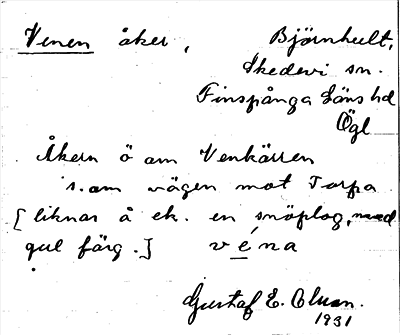 Venen åker, Björnhult,
Skedevi sn.
Finspånga läns hd
Ögl
Åkern ö om Venkärren
s. om vägen mot Torpa
[liknar å ek. en snöplog, med
gul färg.] véna
Gustaf E. Olsson.
1931